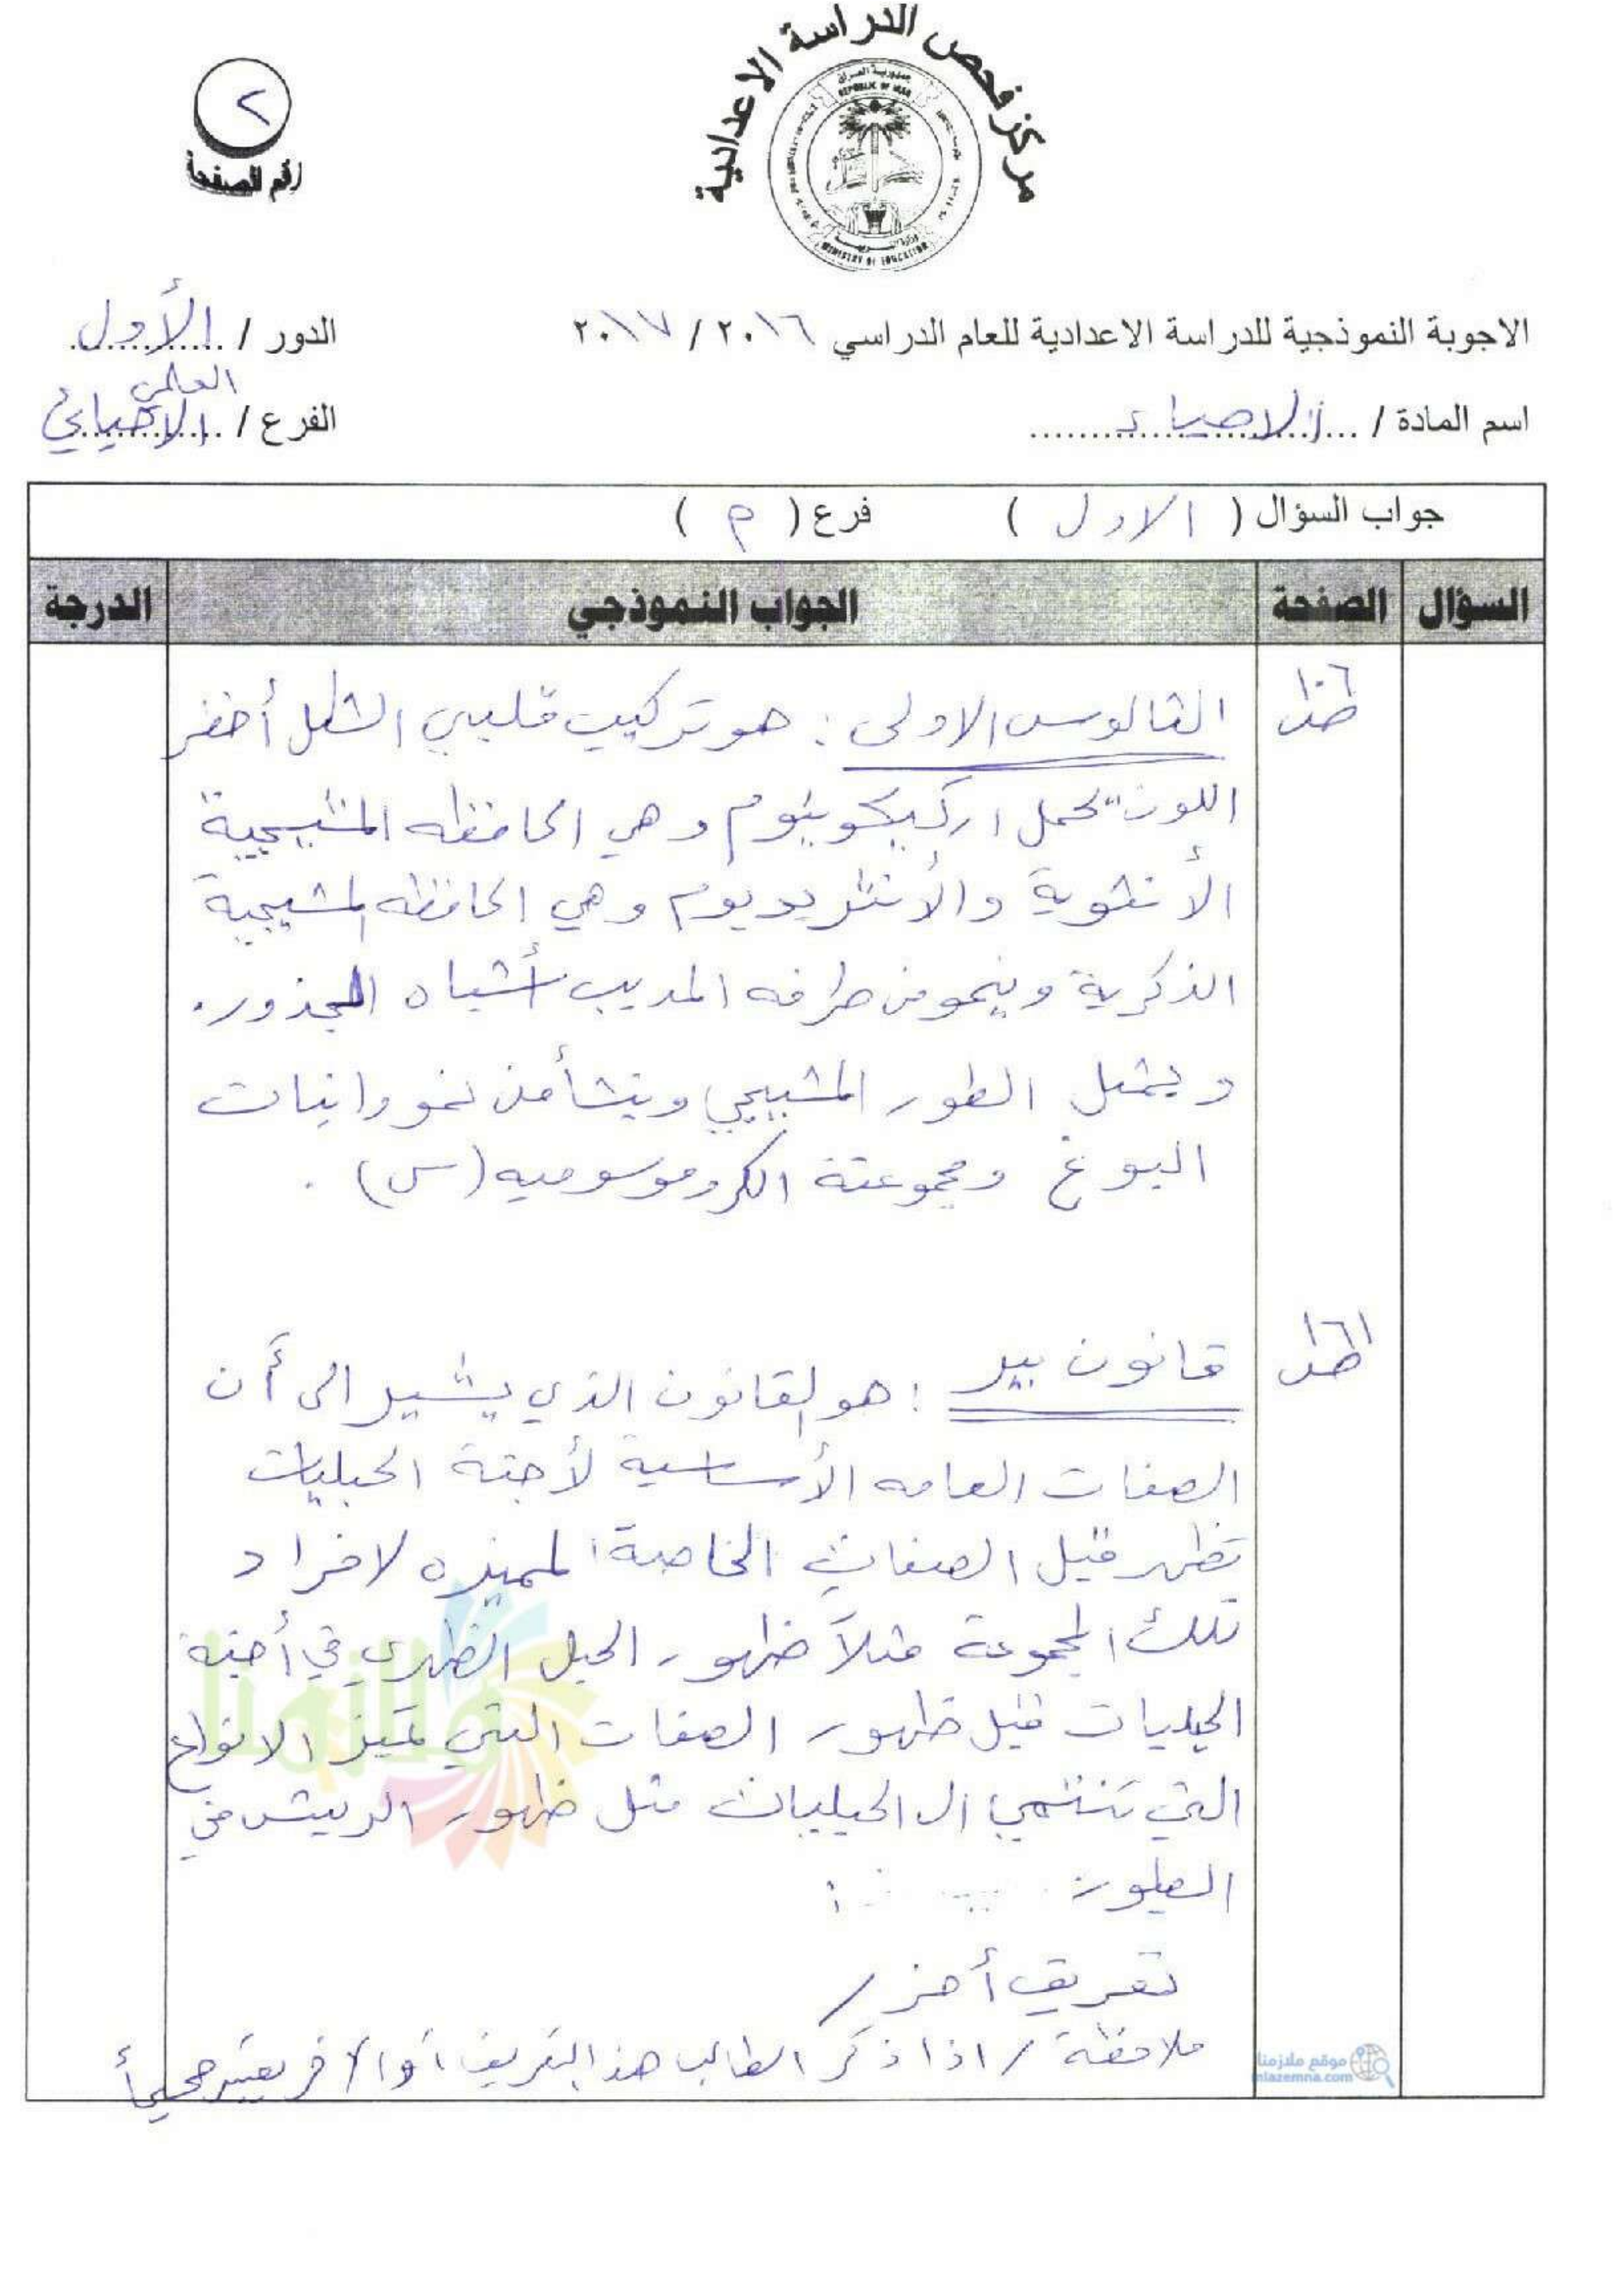 مركز فحص الدراسة الاعدادية
جمهورية العراق
REPUBLIC OF IRAQ
وزارة التربية
MINISTRY OF EDUCATION
٢
رقم الصفحة
الاجوبة النموذجية للدراسة الاعدادية للعام الدراسي ٢٠١٦ / ٢٠١٧
الدور / الأول
اسم المادة / الاحياء
الفرع / العلمي الاحيائي
جواب السؤال ( الاول ) فرع ( م )
السؤال الصفحة الجواب النموذجي الدرجة
ص١٠٦
الثالوس الاولي : هو تركيب قلبي الشكل أخضر
اللون تحمل اركيكونيوم وهي الحافظه المشيجية
الأنثوية والأنثريديوم وهي الحافظه المشيجية
الذكرية وينمو من طرفه المدبب أشباه الجذور.
ويمثل الطور المشيجي وينشأ من نمو وانبات
البوغ ومجموعتة الكروموسوميه (س) .
ص١٦١
قانون بير : هو القانون الذي يشير الى أن
الصفات العامه الأساسية لأجنة الحبليات
تظهر قبل الصفات الخاصة المميزه لافراد
تلك المجموعة مثلاً ظهور الحبل الظهري في أجنة
الحبليات قبل ظهور الصفات التي تميز الانواع
التي تنتمي الى الحبليات مثل ظهور الريش في
الطيور
تعريف أخر /
ملاحظة / اذا ذكر الطالب هذا التعريف أو الاخر يعتبر صحيحاً
ملازمنا
موقع ملازمنا
mlazemna.com